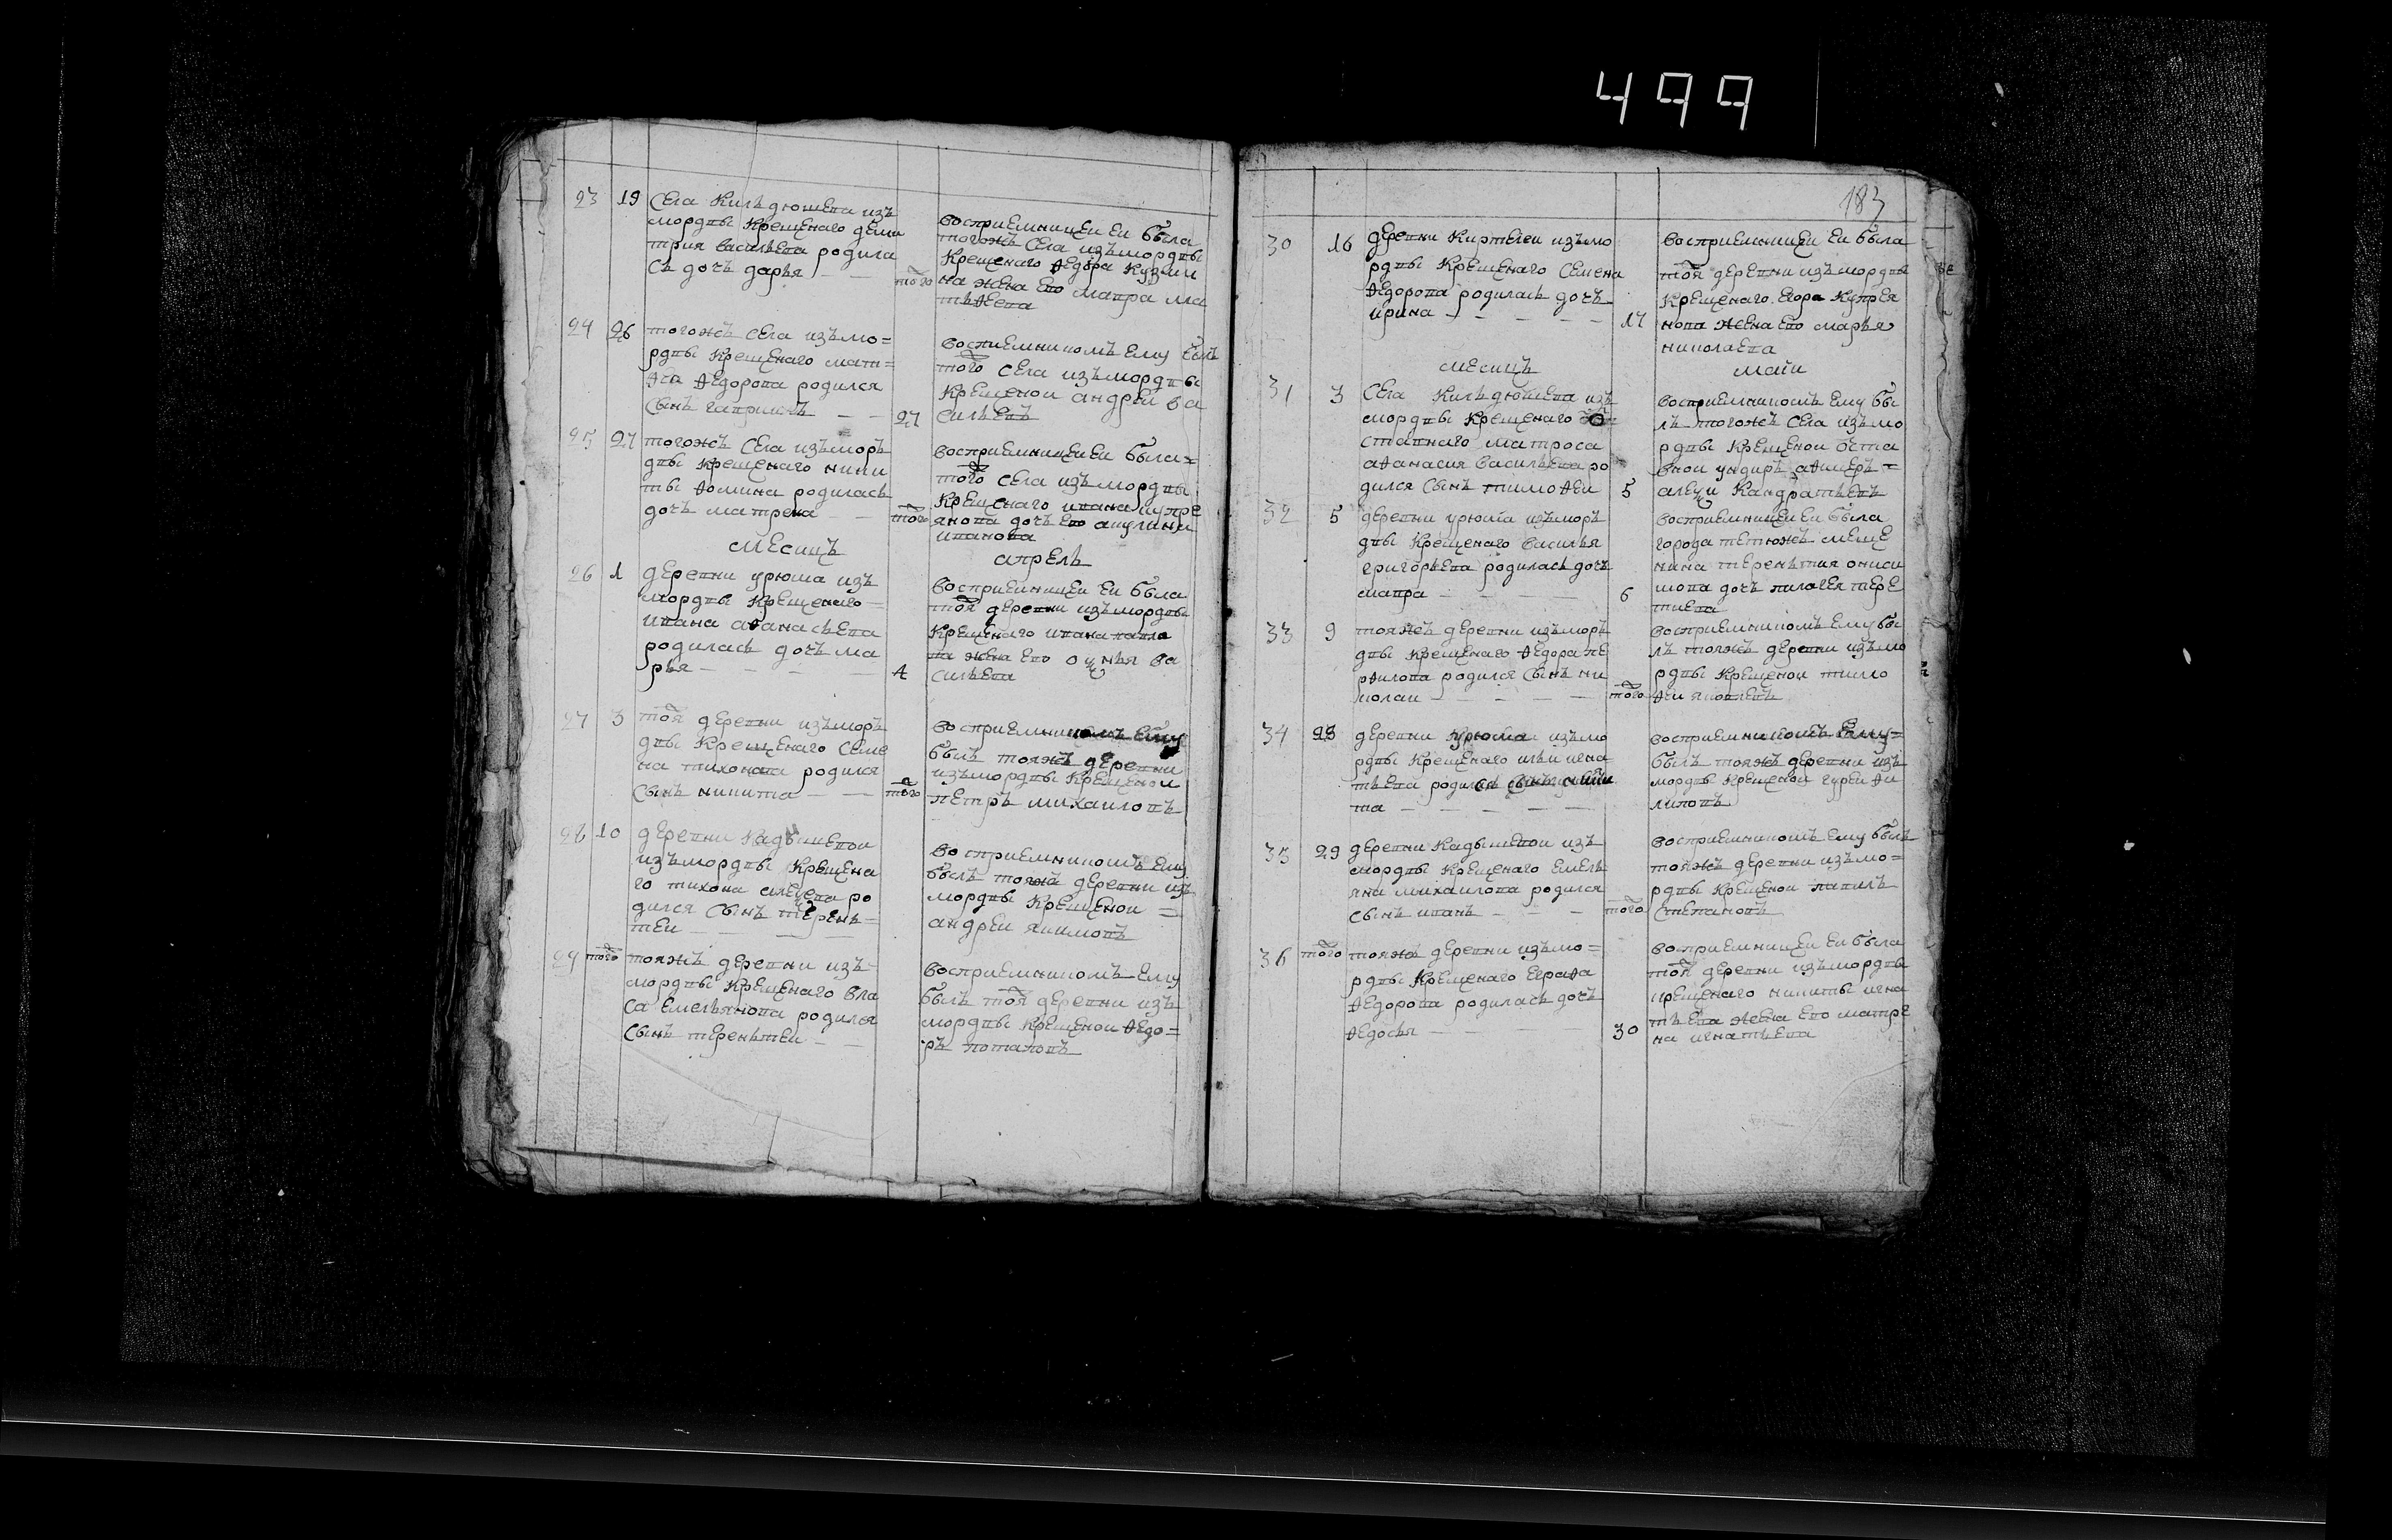 499
183
23 19 Села Кильдюшева изъ
мордвы Крещенаго деми
трия василева родила
съ дочь дарья — —
того
восприемницеи еи была
тогожъ Села изъ мордвы
Крещенаго Ѳедора Кузми
на жена ево мавра ма
твѣева
24 26 тогожъ Села изъ мо=
рдвы Крещенаго матв=
ѣя Ѳедорова родился
Сынъ гаврилъ — —
27
восприемникомъ ему былъ
того Села изъ мордвы
Крещенои андреи ва
сильевъ
25 27 тогожъ Села изъ моръ
двы Крещенаго ники
ты Ѳомина родилась
дочь матрена —
того
восприемницеи еи была=
того Села изъ мордвы
Крещенаго ивана купре
янова дочь ево акулина
иванова
месицъ апрель
26 1 деревни урюма изъ
мордвы Крещенаго=
ивана аѳанасьева
родилась дочь ма
рья — — —
4
восприемницеи еи была
тоя деревни изъ мордвы
Крещенаго ивана павла
ва жена ево ва
сильева
27 3 тоя деревни изъ моръ
двы Крещенаго Семе
на тихонава родился
Сынъ никита — —
того
восприемникомъ ему
былъ тояжъ деревни
изъ мордвы Крещенои
петръ михаиловъ
28 10 деревни Кадышевои
изъ мордвы Крещена
го тихона алецева ро
дился Сынъ терень=
теи — — —
восприемникомъ ему
былъ тояжъ деревни изъ
мордвы Крещенои =
андреи якимовъ
29 того тояжъ деревни изъ
мордвы Крещенаго вла
са Емельянова родился
Сынъ терентеи — —
восприемникомъ ему
былъ тоя деревни изъ
мордвы Крещенои Ѳедо=
ръ потаповъ
30 16 деревни Киртелеи изъ мо
рдвы Крещенаго Семена
Ѳедорова родилась дочь
ирина — — — —
17
восприемницеи еи была
тоя деревни изъ мордвы
Крещенаго Егора Купрея
нова жена ево марья
николаева
месицъ маии
31 3 Села Кильдюшева изъ
мордвы Крещенаго о=
ставнаго матроса
аѳанасия васильева ро
дился Сынъ тимоѳеи
5
восприемникомъ ему бы
лъ тогожъ Села изъ мо
рдвы Крещенои оста
внои ундиръ аѳицеръ=
алецеи Кандратьевъ
32 5 деревни урюма изъ моръ
двы Крещенаго василья
григорьева родилась дочь
мавра — — — —
6
восприемницеи еи была
города тетюжъ меще
нина терентия ониси
мова дочь пилагея тере
тиева
33 9 тояжъ деревни изъ моръ
двы Крещенаго Ѳедора пе
рѳилова родился Сынъ ни
колаи — — — —
того
восприемникомъ ему бы
лъ тояжъ деревни изъ мо
рдвы Крещенои тимо
Ѳеи яковлевъ
34 28 деревни урюма изъ мо
рдвы Крещенаго ильи игна
тьева родился сынъ ники
та — — — —
восприемникомъ ему=
былъ тояжъ деревни изъ
мордвы Крещенои гуреи Ѳи
липовъ
35 29 деревни Кадышевои изъ
мордвы Крещенаго Емель
яна михаилова родился
Сынъ иванъ — — —
того
восприемникомъ ему былъ
тояжъ деревни изъ мо=
рдвы Крещенои павилъ
Степановъ
36 того тояжъ деревни изъ мо=
рдвы Крещенаго Евграѳа
Ѳедорова родилась дочь
Ѳедосья — —
30
восприемницеи еи была
тоя деревни изъ мордвы
крещенаго никиты игна
тьева жена ево матре
на игнатьева